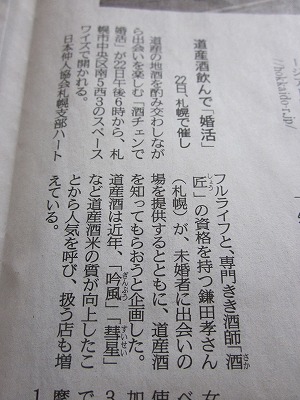 道産酒飲んで「婚活」
22日、札幌で催し
道産の地酒を酌み交わしなが
ら出会いを楽しむ「酒チェンで
婚活」が22日午後6時から、札
幌市中央区南5西3のスペース
ワイズで開かれる。
日本仲人協会札幌支部ハート
フルライフと、専門きき酒師「酒
匠」の資格を持つ鎌田孝さん
（札幌）が、未婚者に出会いの
場を提供するとともに、道産酒
を知ってもらおうと企画した。
道産酒は近年、「吟風」「彗星」
など道産酒米の質が向上したこ
とから人気を呼び、扱う店も増
えている。